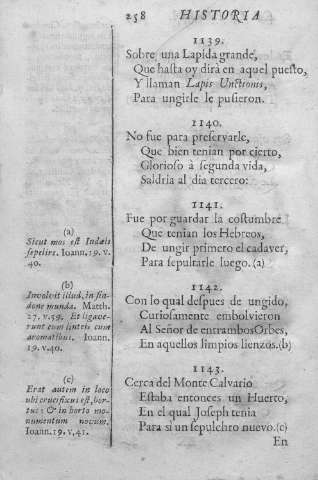 258 HISTORIA
1139.
Sobre una Lapida grande,
Que hasta oy dirà en aquel puesto,
Y llaman Lapis Unctionis,
Para ungirle le pusieron.
1140.
No fue para preservarle,
Que bien tenian por cierto,
Glorioso à segunda vida,
Saldria al dia tercero:
1141.
Fue por guardar la costumbre
Que tenian los Hebreos,
De ungir primero el cadaver,
Para sepultarle luego. (a)
1142.
Con lo qual despues de ungido,
Curiosamente embolvieron
Al Señor de entrambos Orbes,
En aquellos limpios lienzos. (b)
1143.
Cerca del Monte Calvario
Estaba entonces un Huerto,
En el qual Joseph tenia
Para si un sepulchro nuevo. (c)
En
(a)
Sicut mos est Iudæis
sepelire. Ioann. 19. v.
40.
(b)
Involvit illud, in sin-
done munda. Matth.
27. v. 59. Et ligave-
runt eum linteis cum
aromatibus. Ioann.
19. v. 40.
(c)
Erat autem in loco
ubi crucifixus est, hor-
tus: & in horto mo-
numentum novum.
Ioann. 19. v. 41.